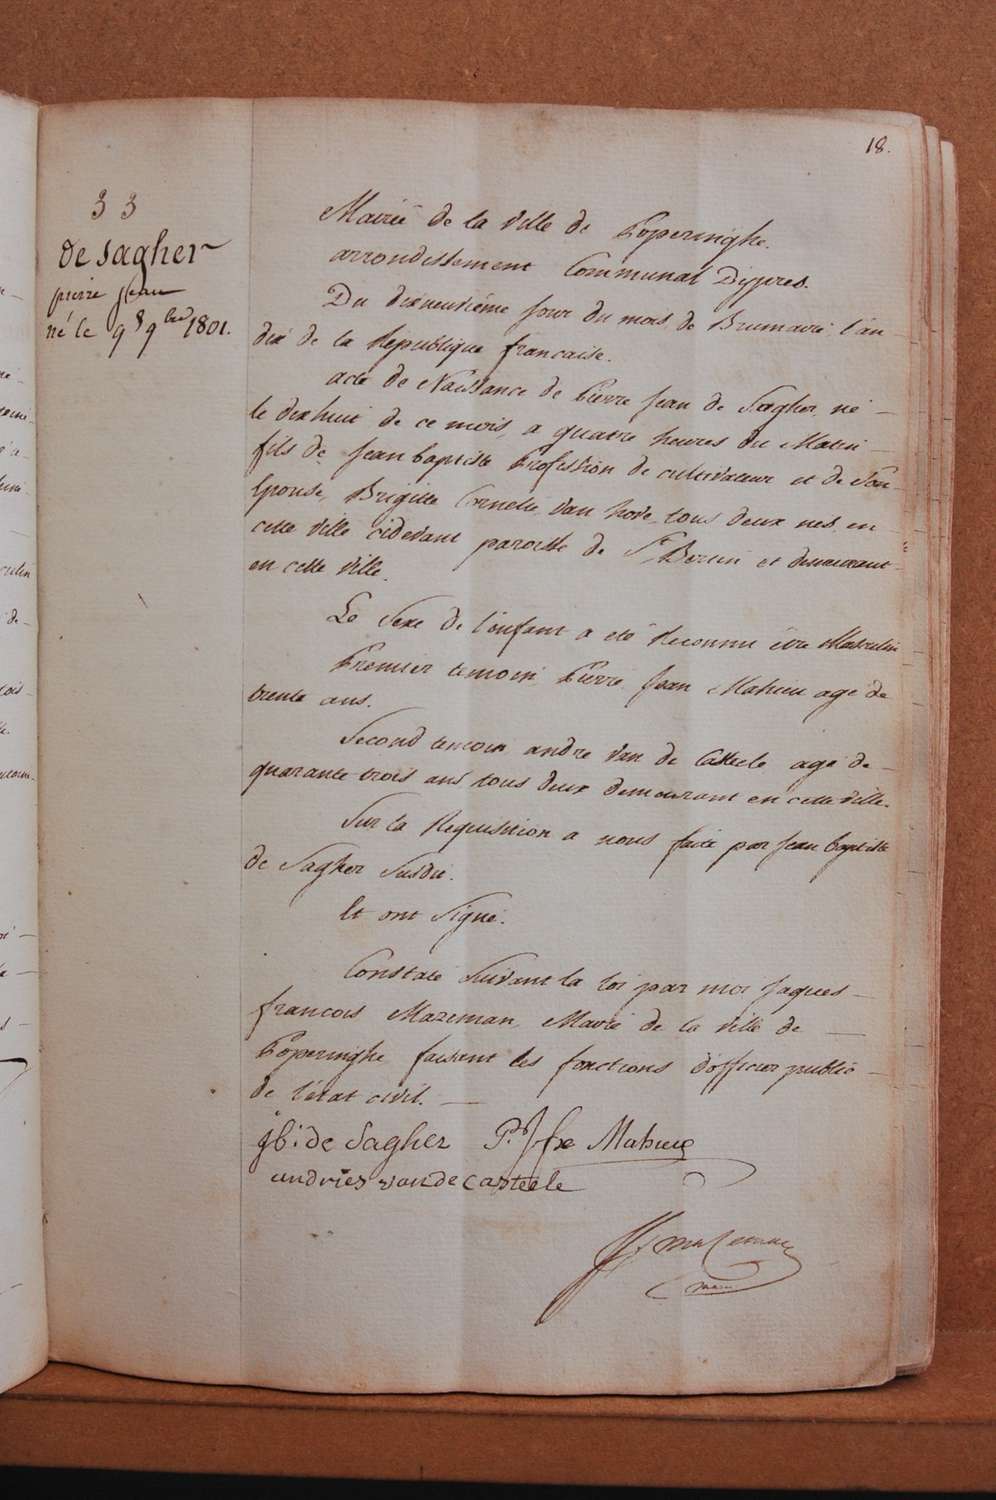 18.
33
de Sagher
pierre jean
né le 9 9bre 1801.
Mairie de la Ville de Poperinghe.
arrondissement Communal Dijpres.
Du dixneuvième jour du mois de Brumaire l'an
dix de la Republique francaise.
acte de Naissance de Pierre Jean de Sagher, né
le dixhuit de ce mois, a quatre heures du Matin
fils de Jean baptiste Profession de cultivateur et de Son
Epouse, Brigitte Cornelie van hove, tous deux nés en
cette ville cidevant paroisse de St Bertin et demeurant
en cette ville.
Le Sexe de l'enfant a eté Reconnu être Masculin
Premier temoin, Pierre Jean Mahieu agé de
trente ans.
Second temoin andre Van de Casteele agé de
quarante trois ans tous deux demeurant en cette ville.
Sur la Requisition a nous faite par Jean baptiste
de Sagher Susdit.
Et ont Signé.
Constaté Suivant la loi par moi Jaques
francois Mazeman, Maire de la Ville de
Poperinghe, faisant les fonctions d'officier public
de l'état civil.
jb: de Sagher P. J. Mahieu
andries van de casteele
JF mazeman
maire